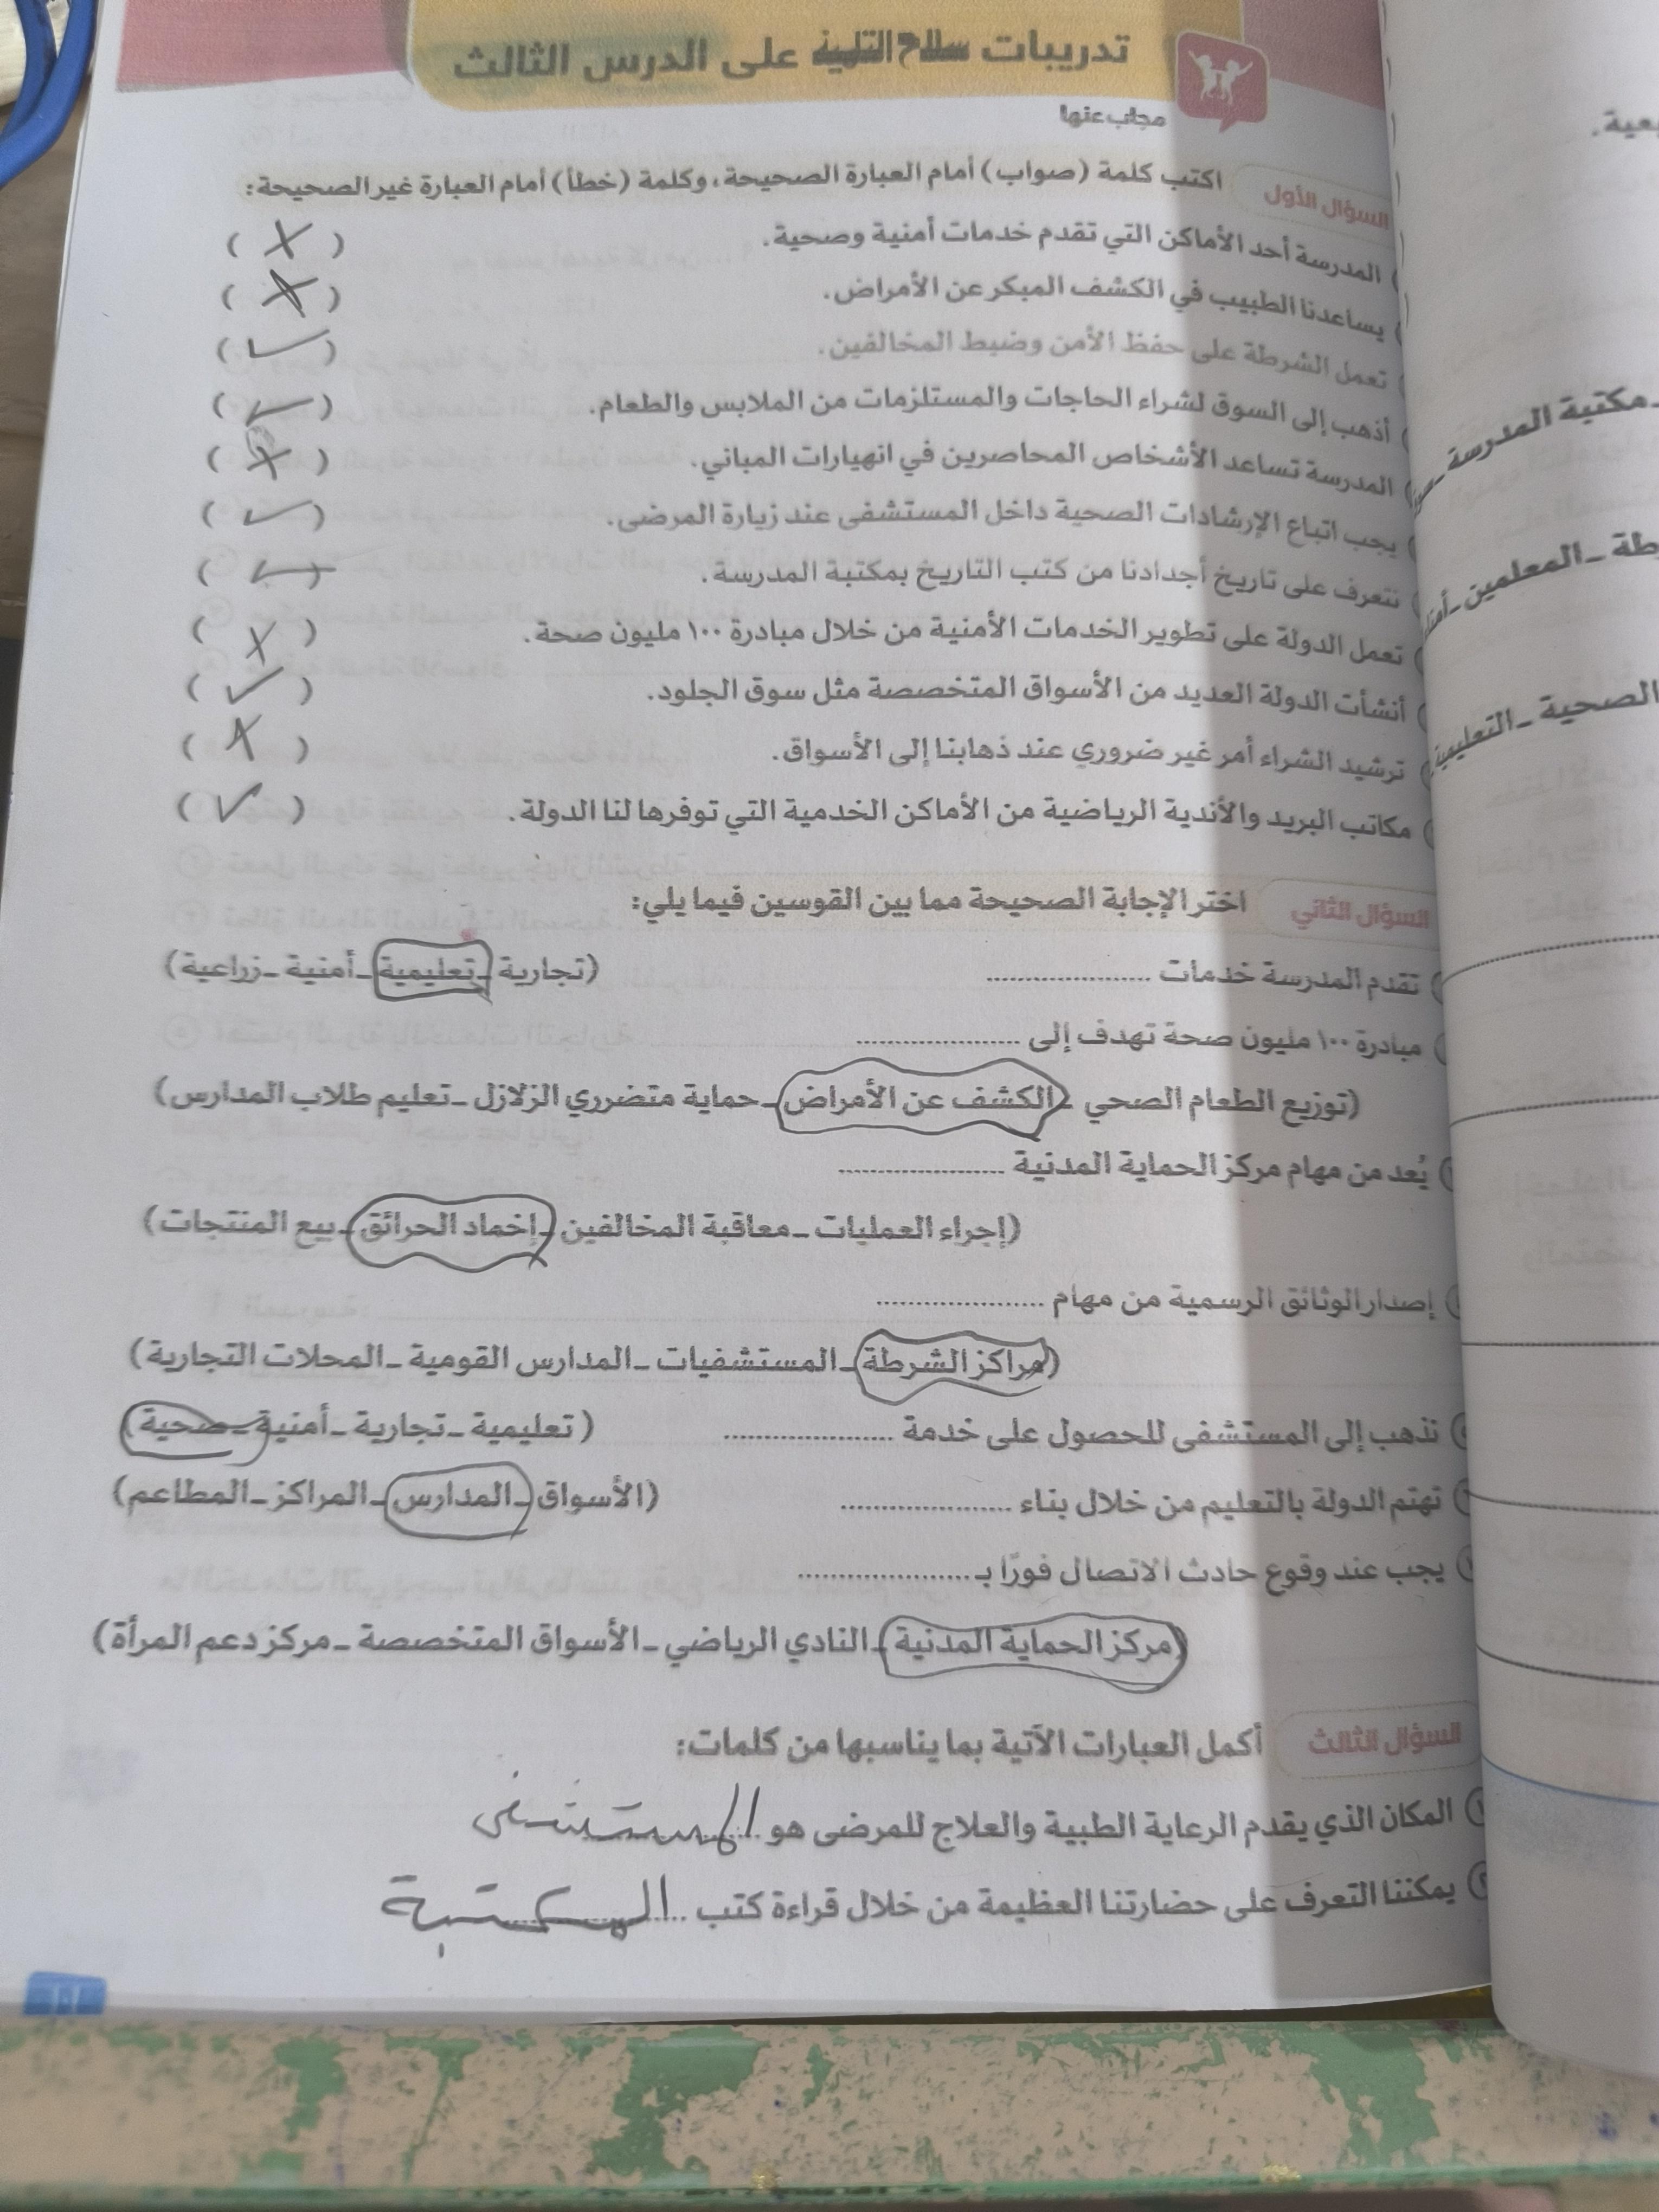 تدريبات سلاح التلميذ على الدرس الثالث
مجاب عنها
السؤال الأول اكتب كلمة (صواب) أمام العبارة الصحيحة، وكلمة (خطأ) أمام العبارة غير الصحيحة:
المدرسة أحد الأماكن التي تقدم خدمات أمنية وصحية. ( X )
يساعدنا الطبيب في الكشف المبكر عن الأمراض. ( X )
تعمل الشرطة على حفظ الأمن وضبط المخالفين. ( ✓ )
أذهب إلى السوق لشراء الحاجات والمستلزمات من الملابس والطعام. ( ✓ )
المدرسة تساعد الأشخاص المحاصرين في انهيارات المباني. ( X )
يجب اتباع الإرشادات الصحية داخل المستشفى عند زيارة المرضى. ( ✓ )
نتعرف على تاريخ أجدادنا من كتب التاريخ بمكتبة المدرسة. ( ✓ )
تعمل الدولة على تطوير الخدمات الأمنية من خلال مبادرة ١٠٠ مليون صحة. ( X )
أنشأت الدولة العديد من الأسواق المتخصصة مثل سوق الجلود. ( ✓ )
ترشيد الشراء أمر غير ضروري عند ذهابنا إلى الأسواق. ( X )
مكاتب البريد والأندية الرياضية من الأماكن الخدمية التي توفرها لنا الدولة. ( ✓ )
السؤال الثاني اختر الإجابة الصحيحة مما بين القوسين فيما يلي:
تقدم المدرسة خدمات .................... (تجارية - تعليمية - أمنية - زراعية)
مبادرة ١٠٠ مليون صحة تهدف إلى ....................
(توزيع الطعام الصحي - الكشف عن الأمراض - حماية متضرري الزلازل - تعليم طلاب المدارس)
يُعد من مهام مركز الحماية المدنية ....................
(إجراء العمليات - معاقبة المخالفين - إخماد الحرائق - بيع المنتجات)
إصدار الوثائق الرسمية من مهام ....................
(مراكز الشرطة - المستشفيات - المدارس القومية - المحلات التجارية)
نذهب إلى المستشفى للحصول على خدمة .................... (تعليمية - تجارية - أمنية - صحية)
تهتم الدولة بالتعليم من خلال بناء .................... (الأسواق - المدارس - المراكز - المطاعم)
يجب عند وقوع حادث الاتصال فورًا بـ ....................
(مركز الحماية المدنية - النادي الرياضي - الأسواق المتخصصة - مركز دعم المرأة)
السؤال الثالث أكمل العبارات الآتية بما يناسبها من كلمات:
المكان الذي يقدم الرعاية الطبية والعلاج للمرضى هو المستشفى
يمكننا التعرف على حضارتنا العظيمة من خلال قراءة كتب المكتبة
مكتبة المدرسة
المعلمين
الصحية - التعليمية